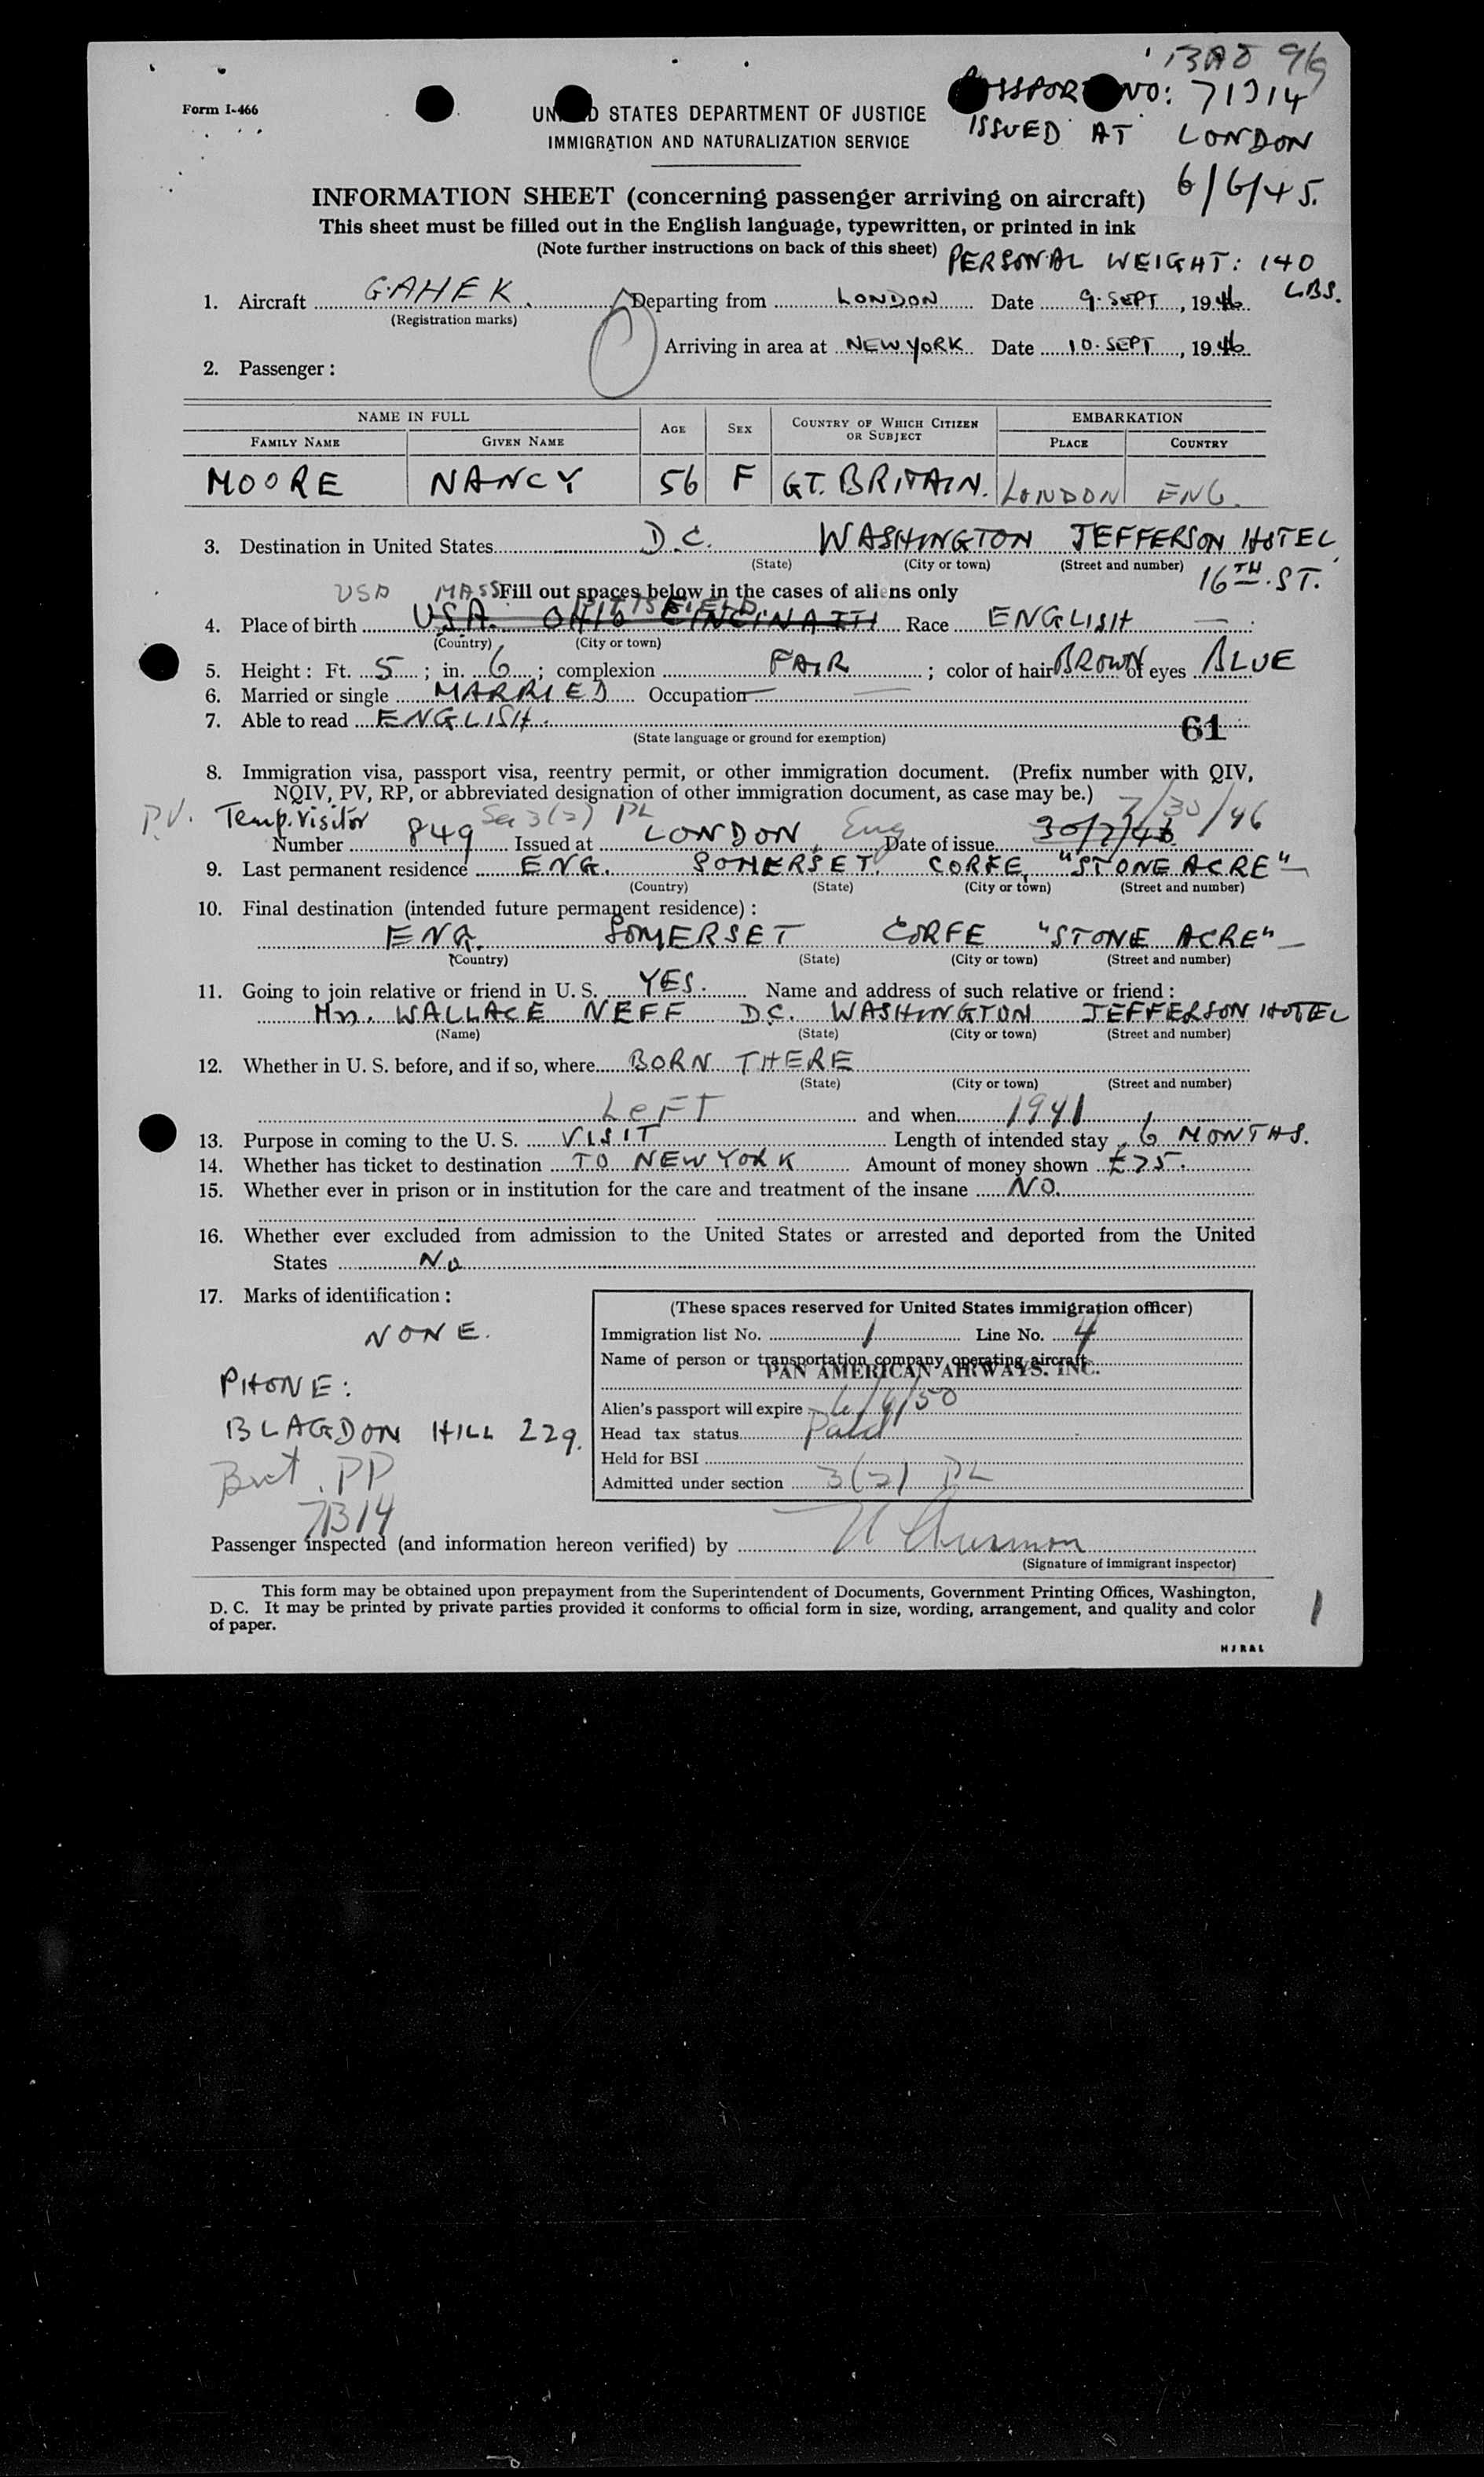 BAO 96
Form I-466
UNITED STATES DEPARTMENT OF JUSTICE
PASSPORT NO: 71314
IMMIGRATION AND NATURALIZATION SERVICE
ISSUED AT LONDON
6/6/45.
INFORMATION SHEET (concerning passenger arriving on aircraft)
This sheet must be filled out in the English language, typewritten, or printed in ink
(Note further instructions on back of this sheet)
PERSONAL WEIGHT: 140 LBS.
1. Aircraft G.AHEK. Departing from LONDON Date 9. SEPT, 1946
(Registration marks)
Arriving in area at NEW YORK Date 10. SEPT, 1946
2. Passenger:
NAME IN FULL AGE SEX COUNTRY OF WHICH CITIZEN OR SUBJECT EMBARKATION
FAMILY NAME GIVEN NAME PLACE COUNTRY
MOORE NANCY 56 F GT. BRITAIN. LONDON ENG.
3. Destination in United States D.C. WASHINGTON JEFFERSON HOTEL
(State) (City or town) (Street and number)
16TH. ST.
Fill out spaces below in the cases of aliens only
USA MASS PITTSFIELD
4. Place of birth U.S.A. OHIO CINCINATTI Race ENGLISH
(Country) (City or town)
5. Height: Ft. 5; in. 6; complexion FAIR; color of hair BROWN of eyes BLUE
6. Married or single MARRIED Occupation —
7. Able to read ENGLISH.
(State language or ground for exemption)
61
8. Immigration visa, passport visa, reentry permit, or other immigration document. (Prefix number with QIV,
NQIV, PV, RP, or abbreviated designation of other immigration document, as case may be.)
P.V. Temp. Visitor Sec 3(2) PL 7/30/46
Number 849 Issued at LONDON, Eng Date of issue 30/7/46
9. Last permanent residence ENG. SOMERSET. CORFE, "STONE ACRE"
(Country) (State) (City or town) (Street and number)
10. Final destination (intended future permanent residence):
ENG. SOMERSET CORFE "STONE ACRE"
(Country) (State) (City or town) (Street and number)
11. Going to join relative or friend in U. S. YES. Name and address of such relative or friend:
Mrs. WALLACE NEFF D.C. WASHINGTON JEFFERSON HOTEL
(Name) (State) (City or town) (Street and number)
12. Whether in U. S. before, and if so, where BORN THERE
(State) (City or town) (Street and number)
LEFT and when 1941
13. Purpose in coming to the U. S. VISIT Length of intended stay 6 MONTHS.
14. Whether has ticket to destination TO NEW YORK Amount of money shown £75.
15. Whether ever in prison or in institution for the care and treatment of the insane NO.
16. Whether ever excluded from admission to the United States or arrested and deported from the United
States No
17. Marks of identification:
NONE.
PHONE:
BLAGDON HILL 229.
Brit. PP
71314
(These spaces reserved for United States immigration officer)
Immigration list No. 1 Line No. 4
Name of person or transportation company operating aircraft
PAN AMERICAN AIRWAYS. INC.
Alien's passport will expire 6/6/50
Head tax status Paid
Held for BSI
Admitted under section 3(2) PL
Passenger inspected (and information hereon verified) by
(Signature of immigrant inspector)
This form may be obtained upon prepayment from the Superintendent of Documents, Government Printing Offices, Washington,
D. C. It may be printed by private parties provided it conforms to official form in size, wording, arrangement, and quality and color
of paper.
1
HJRAL